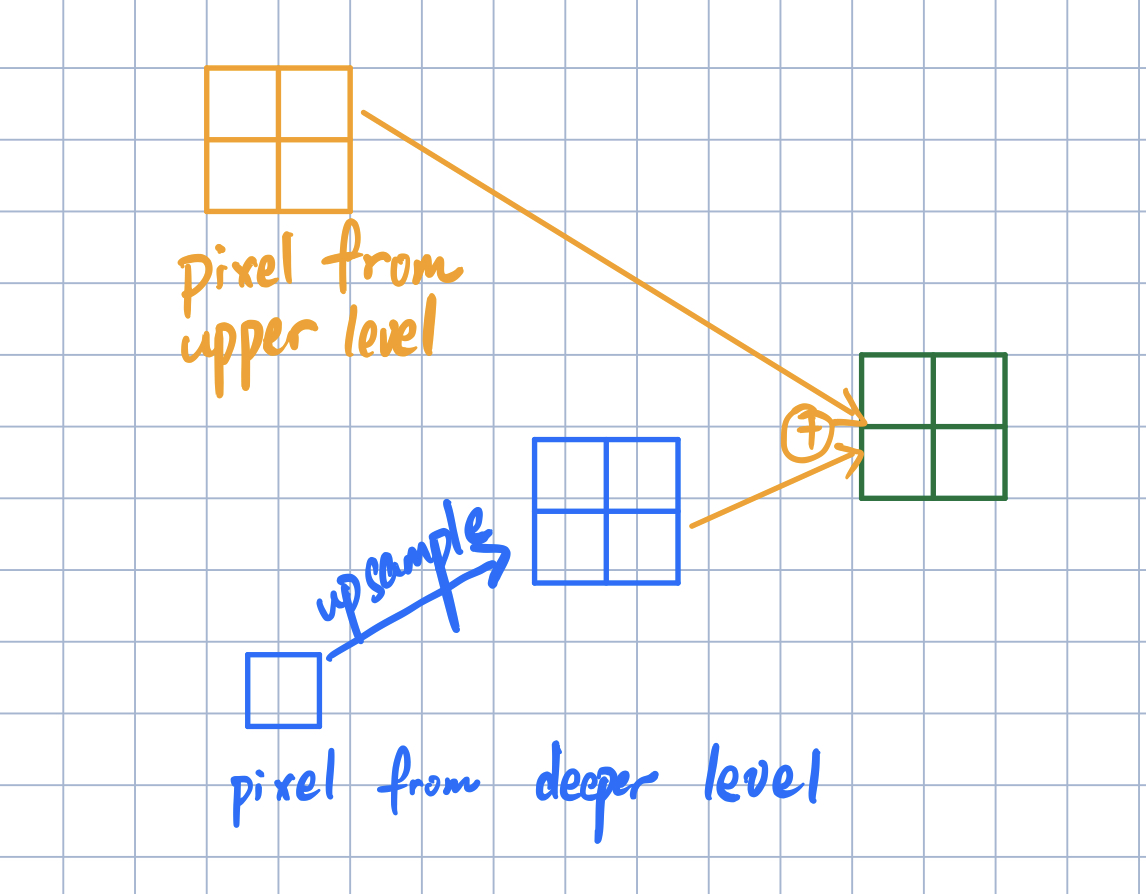 pixel from
upper level
+
upsample
pixel from deeper level